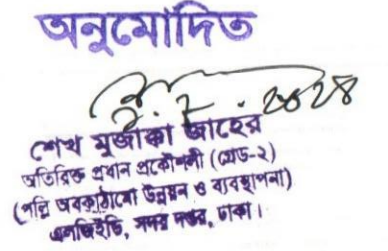 অনুমোদিত
২.৮.২০২৪
শেখ মুজাক্কা জাহের
অতিরিক্ত প্রধান প্রকৌশলী (গ্রেড-২)
(পল্লি অবকাঠামো উন্নয়ন ও ব্যবস্থাপনা)
এলজিইডি, সদর দপ্তর, ঢাকা।